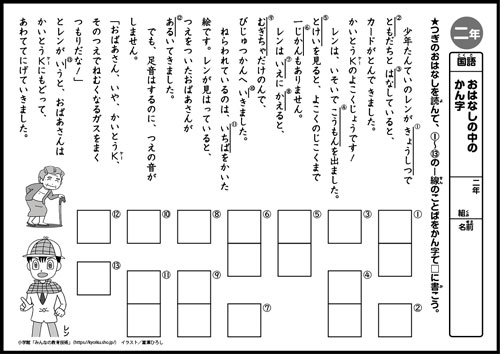 二年
国語
おはなしの中の
かん字
二年 組 名前
★つぎのおはなしを読んで、①〜⑬の―線のことばをかん字で□に書こう。
少年たんていのレンが①きょうしつで
②ともだちと③はなしていると、
カードがとんできました。
かいとうKのよこくじょうです!
レンは、いそいで④こうもんを出ました。
⑤とけいを見ると、よこくのじこくまで
⑥一じかんもありません。
レンは⑦いえに⑧かえると、
⑨むぎちゃだけのんで、
びじゅつかんへ⑩いきました。
ねらわれているのは、⑪いちばをかいた
絵です。レンが見はっていると、
つえをついたおばあさんが
⑫あるいてきました。
でも、足音はするのに、つえの音が
しません。
「おばあさん、いや、かいとうK、
そのつえでねむくなるガスをまく
つもりだな!」
とレンが⑬いうと、おばあさんは
かいとうKにもどって、
あわててにげていきました。
①
②
③
④
⑤
⑥
⑦
⑧
⑨
⑩
⑪
⑫
⑬
レン
小学館「みんなの教育技術」(https://kyoiku.sho.jp/) イラスト/富濃ひろし